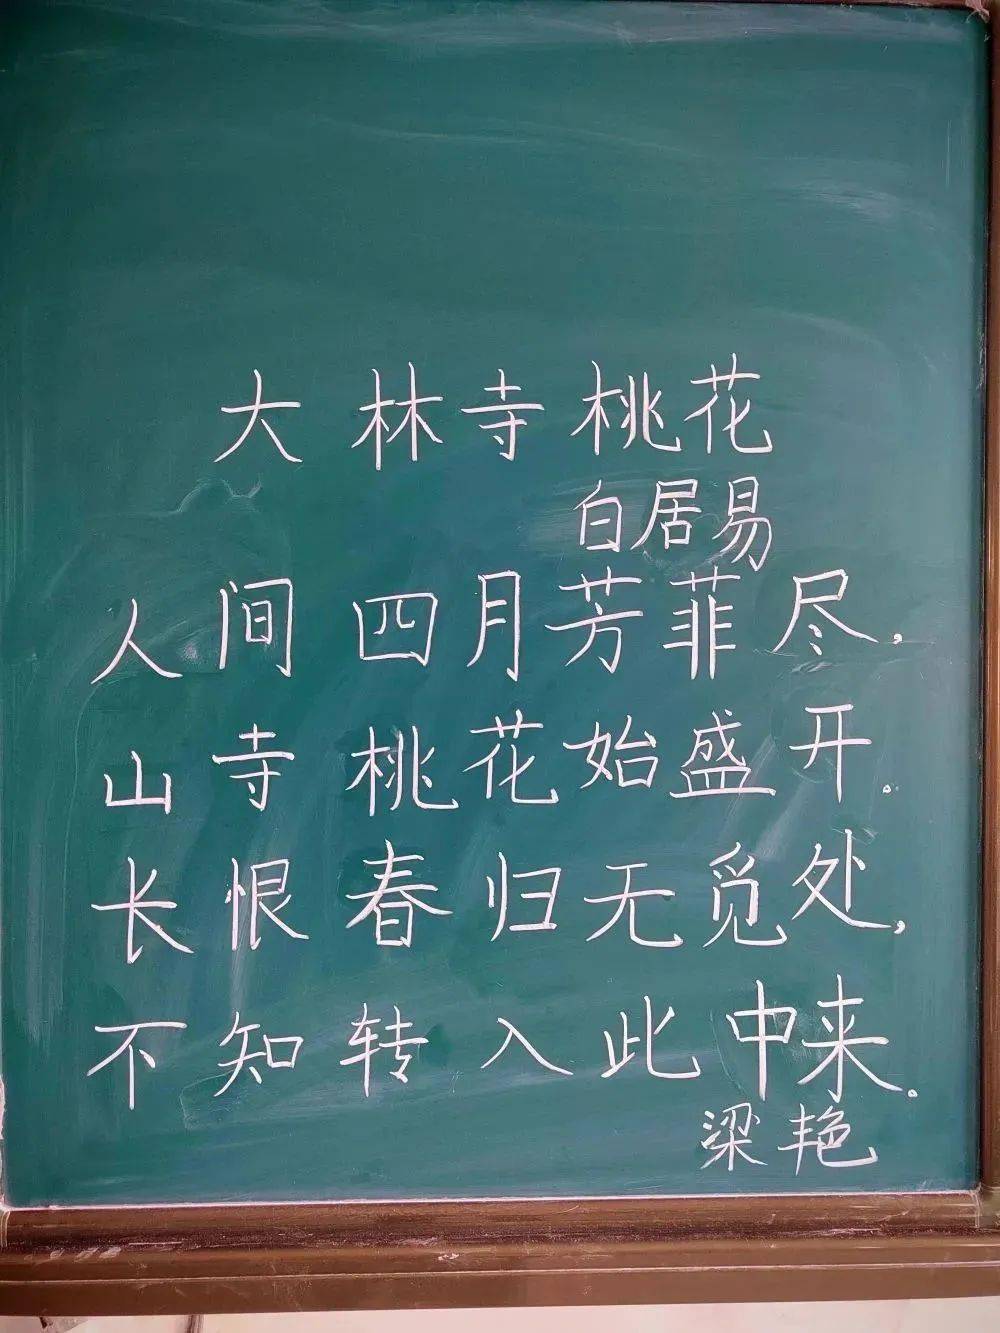 大林寺桃花
白居易
人间四月芳菲尽，
山寺桃花始盛开。
长恨春归无觅处，
不知转入此中来。
梁艳